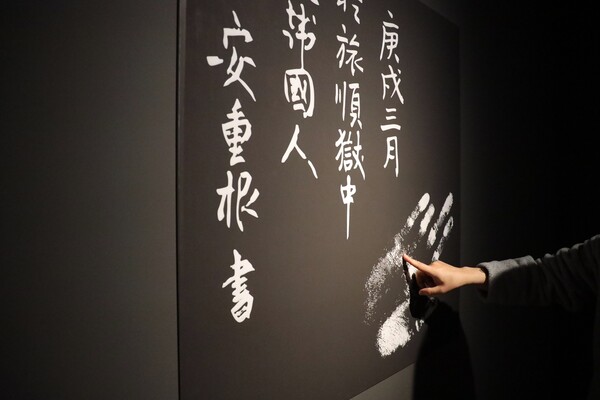 庚戌三月
於旅順獄中
韓國人
安重根 書